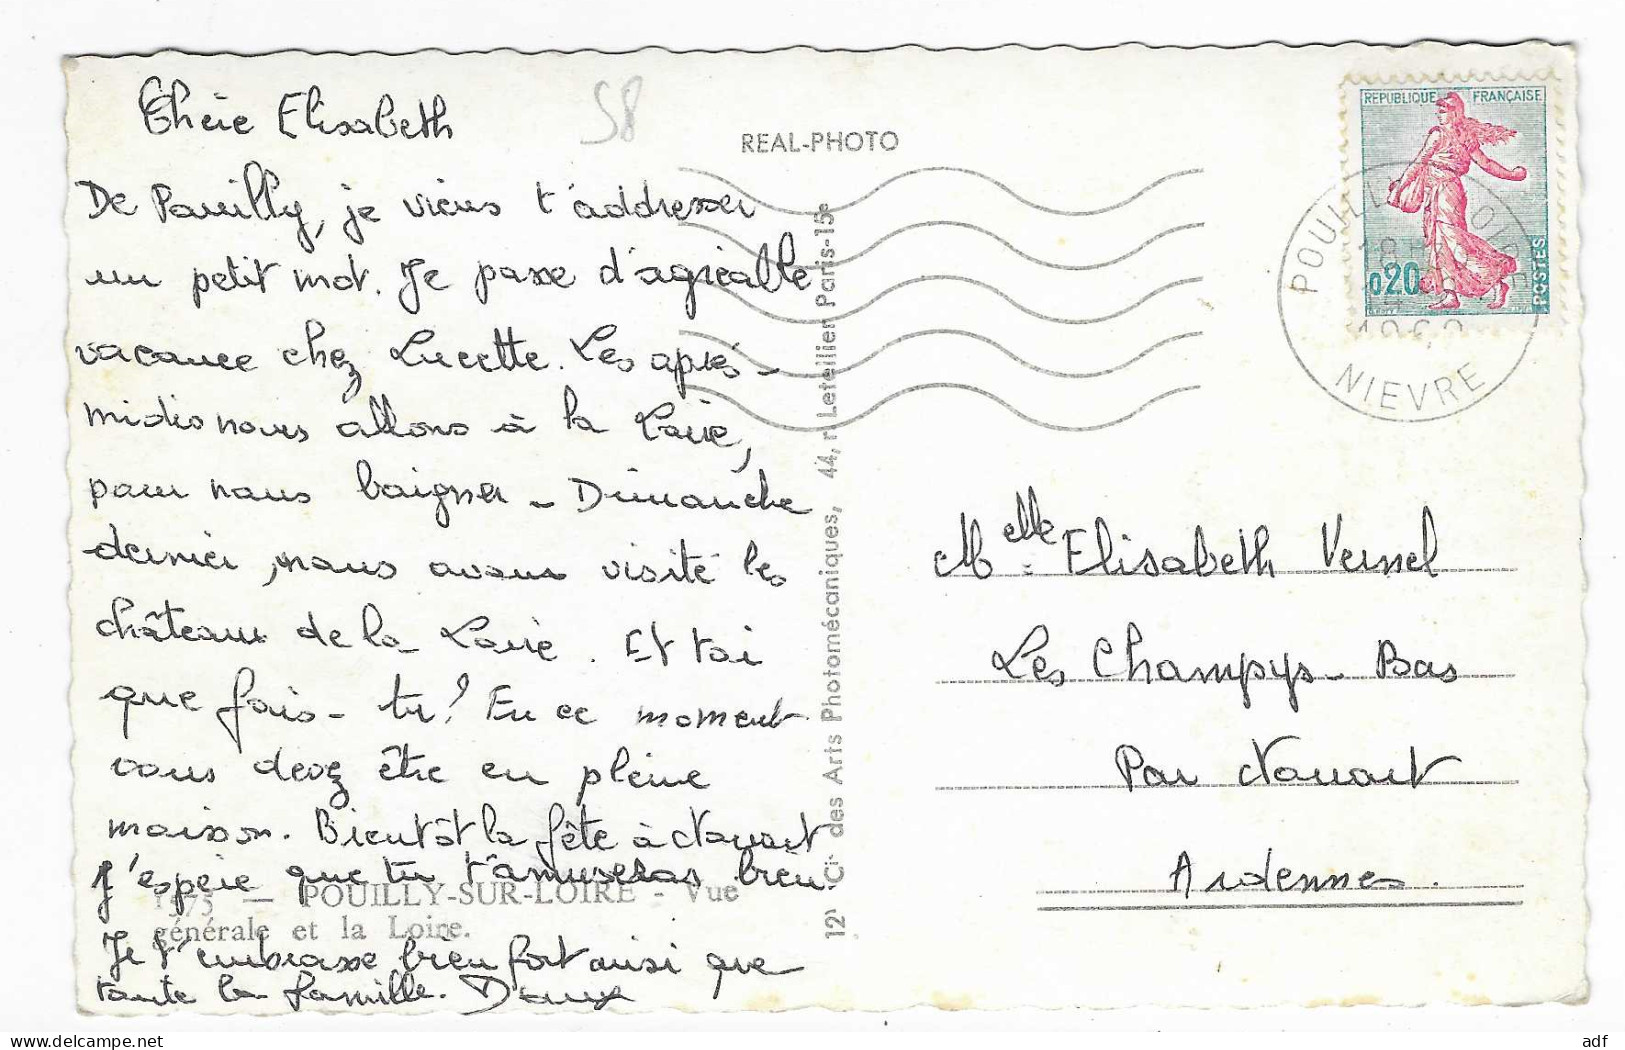 58
Chère Elisabeth
De Pouilly, je viens t'addresser
un petit mot. Je passe d'agréable
vacance chez Lucette. Les après-
midis nous allons à la Loire,
pour nous baigner - Dimanche
dernier, nous avons visité les
châteaux de la Loire. Et toi
que fais-tu? En ce moment
vous devez être en pleine
maison. Bientôt la fête à Nouart
J'espère que tu t'amuseras bien.
Je t'embrasse bien fort ainsi que
toute la famille.
POUILLY-SUR-LOIRE - Vue
générale et la Loire.
REAL-PHOTO
des Arts Photomécaniques, 44, r. Letellier Paris-15e
REPUBLIQUE FRANÇAISE
0,20
POSTES
POUILLY S LOIRE
NIEVRE
Melle Elisabeth Vernel
Les Champys-Bas
Par Nouart
Ardennes.
adf